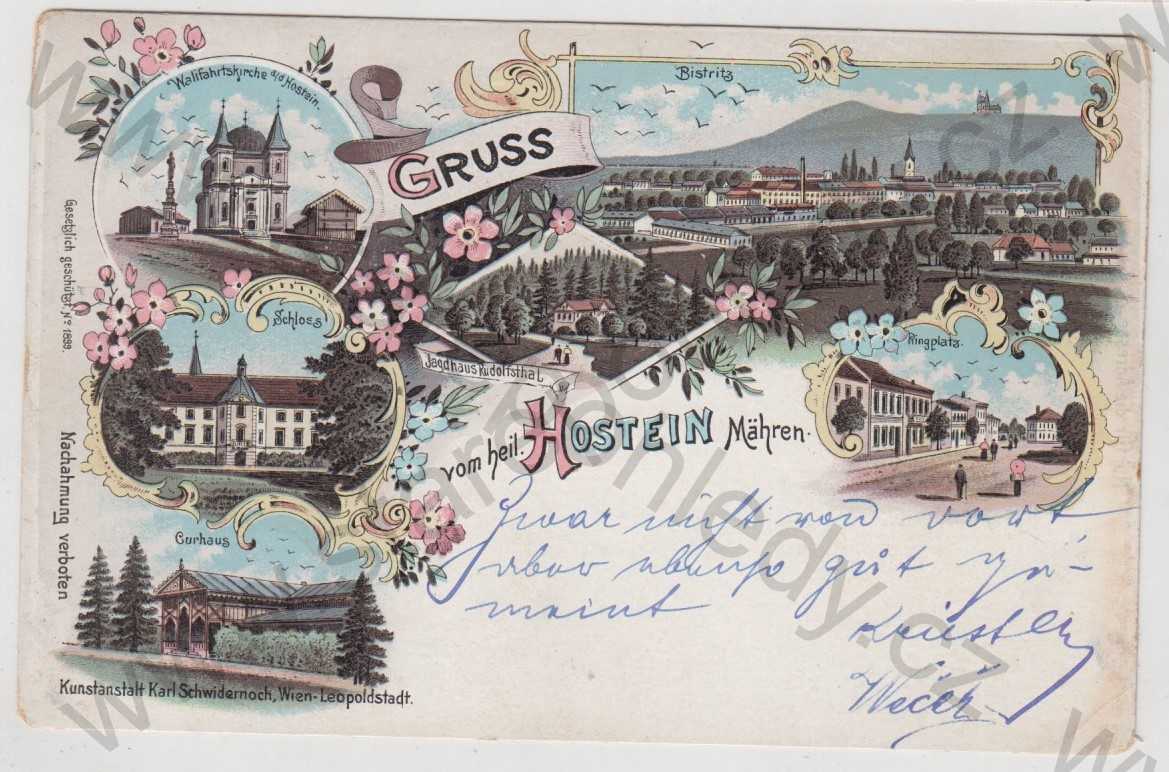 Wallfahrtskirche a/d Hostein.
GRUSS
Bistritz
Gesetzlich geschützt No 1899.
Schloss
Jagdhaus Rudolfsthal
Ringplatz.
vom heil. HOSTEIN Mähren.
Nachahmung verboten
Curhaus
Zwar nicht von dort
aber ebenso gut ge-
meint
Kunstanstalt Karl Schwidernoch, Wien-Leopoldstadt.